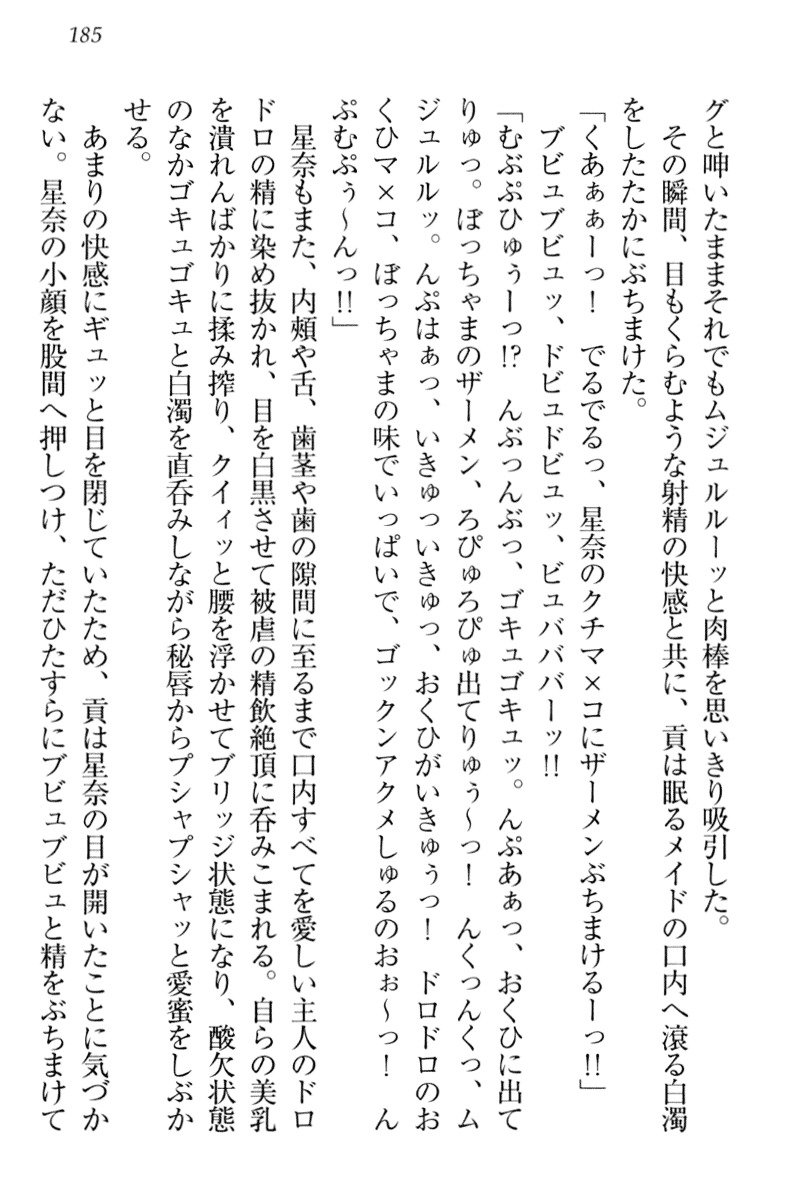 185
グと呻いたままそれでもムジュルルーッと肉棒を思いきり吸引した。
その瞬間、目もくらむような射精の快感と共に、貢は眠るメイドの口内へ滾る白濁
をしたたかにぶちまけた。
「くあぁぁーっ！　でるでるっ、星奈のクチマ×コにザーメンぶちまけるーっ!!」
ブビュブビュッ、ドビュドビュッ、ビュバババーッ!!
「むぶぷひゅぅーっ!?　んぶっんぶっ、ゴキュゴキュッ。んぷあぁっ、おくひに出て
りゅっ。ぼっちゃまのザーメン、ろぴゅろぴゅ出てりゅぅ～っ！　んくっんくっ、ム
ジュルルッ。んぷはぁっ、いきゅっいきゅっ、おくひがいきゅぅっ！　ドロドロのお
くひマ×コ、ぼっちゃまの味でいっぱいで、ゴックンアクメしゅるのおぉ～っ！　ん
ぷむぷぅ～んっ!!」
星奈もまた、内頬や舌、歯茎や歯の隙間に至るまで口内すべてを愛しい主人のドロ
ドロの精に染め抜かれ、目を白黒させて被虐の精飲絶頂に呑みこまれる。自らの美乳
を潰れんばかりに揉み搾り、クイィッと腰を浮かせてブリッジ状態になり、酸欠状態
のなかゴキュゴキュと白濁を直呑みしながら秘唇からプシャプシャッと愛蜜をしぶか
せる。
あまりの快感にギュッと目を閉じていたため、貢は星奈の目が開いたことに気づか
ない。星奈の小顔を股間へ押しつけ、ただひたすらにブビュブビュと精をぶちまけて